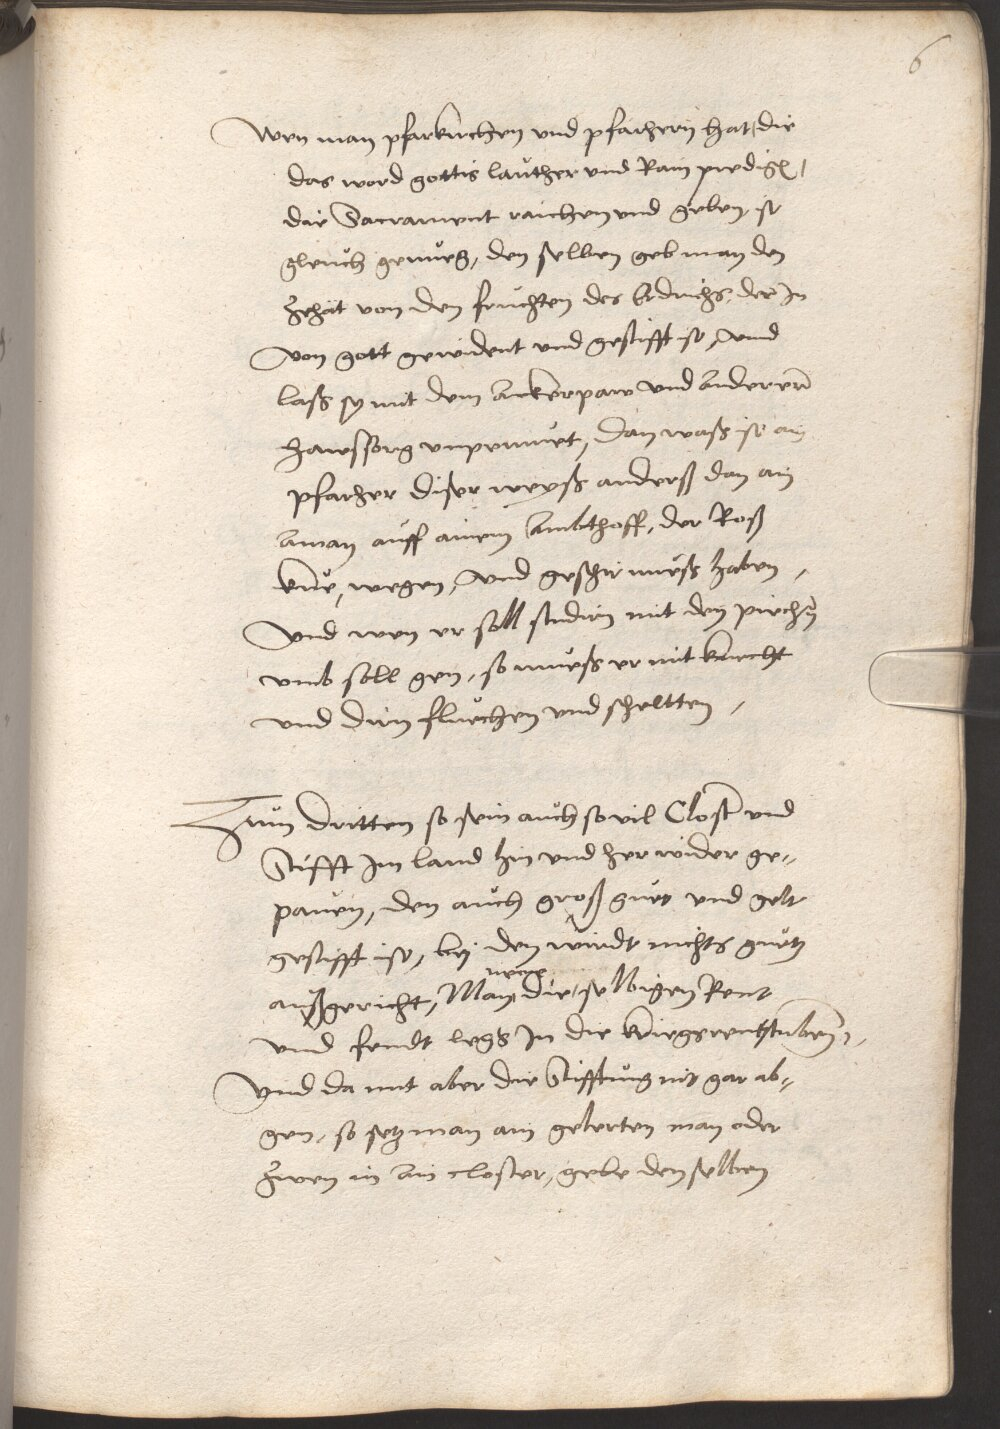 6
Wen man pfarkirchen und pfarhern hat, die
das word gottis lauther und Rain predign,
die Sacrament raichen und geben, ist
gleich genueg, den selben geb man den
zehat von den fruchten des Erdrichs, der In
von gott gewident und gestifft ist, und
lass sy mit dem Ackerpaw und anderer
hawssorg unpemuet, Dan wass ist ain
pfarher diser weyss anderss dan ain
Aman auff ainem Ambthoff, der Ross
kue, wegen, und geschir muess haben,
Und wen er soll studirn mit den puechern
umb soll gen, so muess er mit knecht
und dirn fluechen und scheltten,
Zum dritten so sein auch so vil Closter und
Stifft Im land hin und her wider ge-
pauen, den auch gross guet und gelt
gestifft ist, bei den wirdt nichts guetz
aussgericht, Man neme die selbigen Rent
und legs In die kriegsrentstuben,
Und da mit aber die Stifftung nit gar ab-
gen, so setz man ain gelerten man oder
zwen in ain closter, gebe den selben